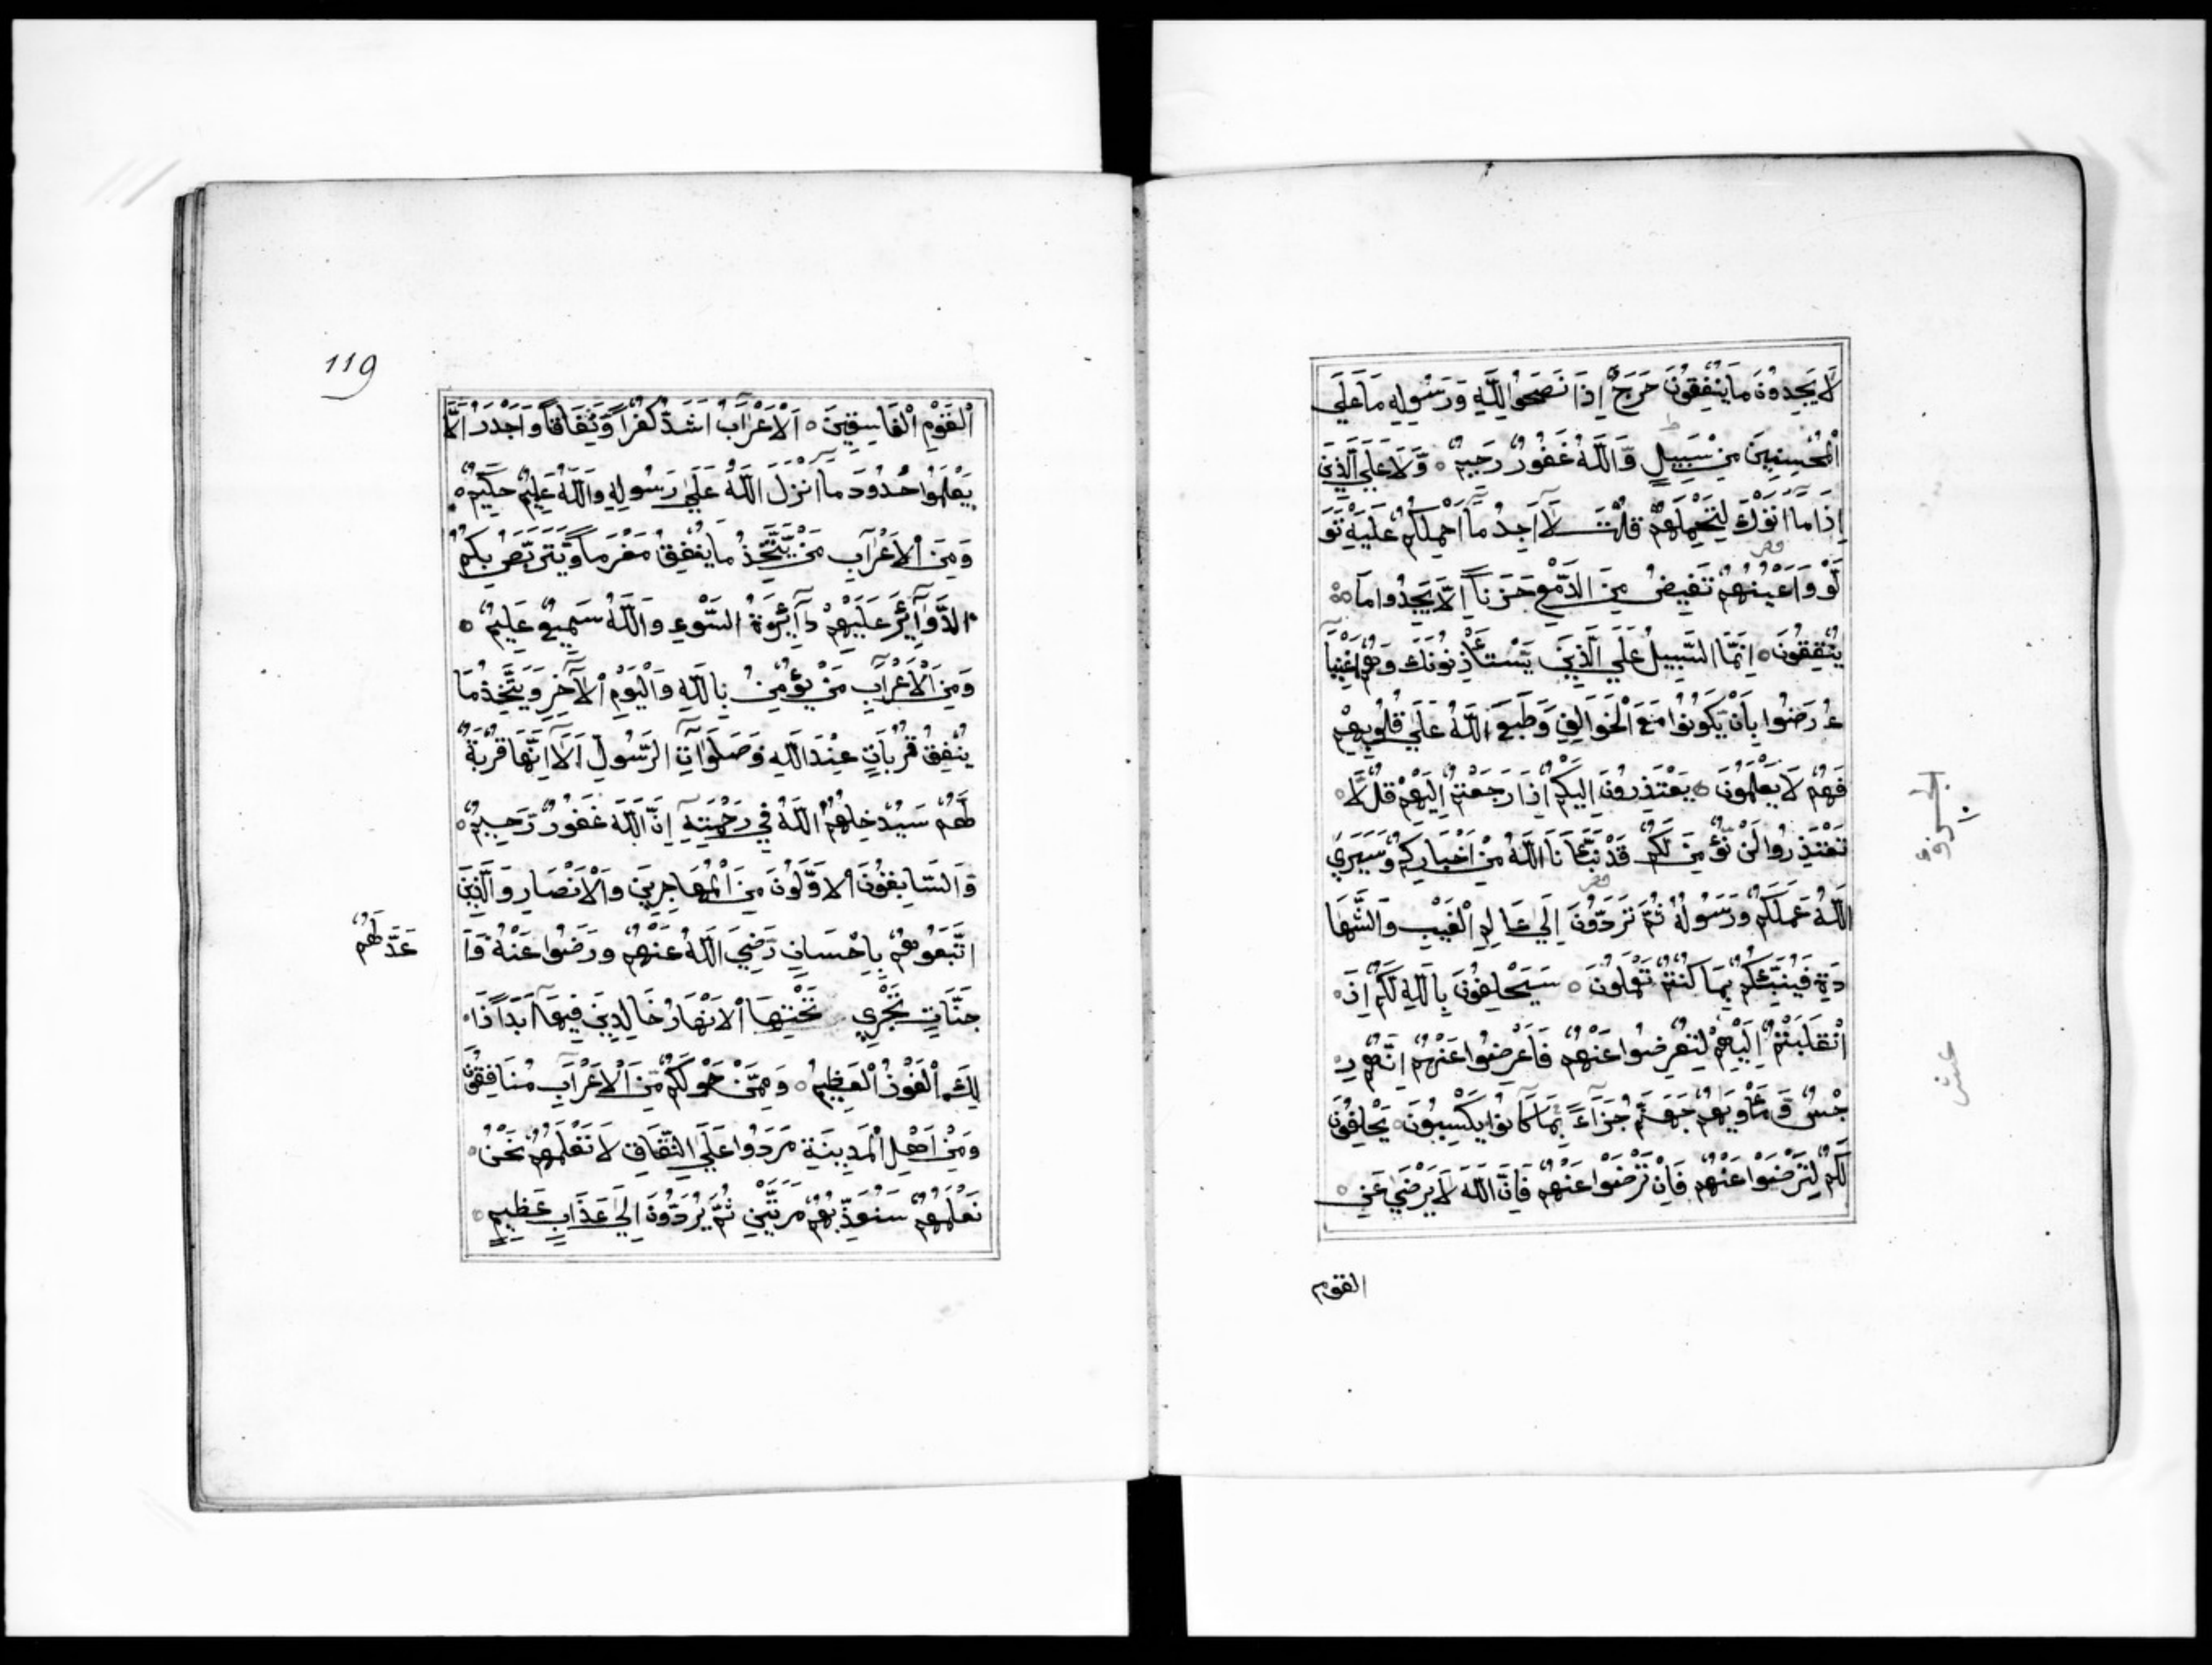 لَا يَجِدُونَ مَا يُنْفِقُونَ حَرَجٌ اِذَا نَصَحُوا لِلّٰهِ وَرَسُولِهِ مَا عَلَي
الْمُحْسِنِينَ مِنْ سَبِيلٍ وَاللّٰهُ غَفُورٌ رَحِيمٌ ۝ وَلَا عَلَي الَّذِينَ
اِذَا مَا اَتَوْكَ لِتَحْمِلَهُمْ قُلْتَ لَا اَجِدُ مَا اَحْمِلُكُمْ عَلَيْهِ تَوَ
لَّوْ وَاَعْيُنُهُمْ تَفِيضُ مِنَ الدَّمْعِ حَزَنًا اَلَّا يَجِدُوا مَا
يُنْفِقُونَ ۝ اِنَّمَا السَّبِيلُ عَلَي الَّذِينَ يَسْتَأْذِنُونَكَ وَهُمْ اَغْنِيَا
ءُ رَضُوا بِاَنْ يَكُونُوا مَعَ الْخَوَالِفِ وَطَبَعَ اللّٰهُ عَلَي قُلُوبِهِمْ
فَهُمْ لَا يَعْلَمُونَ ۝ يَعْتَذِرُونَ اِلَيْكُمْ اِذَا رَجَعْتُمْ اِلَيْهِمْ قُلْ لَا
تَعْتَذِرُوا لَنْ نُؤْمِنَ لَكُمْ قَدْ نَبَّاَنَا اللّٰهُ مِنْ اَخْبَارِكُمْ وَسَيَرَي
اللّٰهُ عَمَلَكُمْ وَرَسُولُهُ ثُمَّ تُرَدُّونَ اِلَي عَالِمِ الْغَيْبِ وَالشَّهَا
دَةِ فَيُنَبِّئُكُمْ بِمَا كُنْتُمْ تَعْمَلُونَ ۝ سَيَحْلِفُونَ بِاللّٰهِ لَكُمْ اِذَ
انْقَلَبْتُمْ اِلَيْهِمْ لِتُعْرِضُوا عَنْهُمْ فَاَعْرِضُوا عَنْهُمْ اِنَّهُمْ رِ
جْسٌ وَمَأْوَيهُمْ جَهَنَّمُ جَزَاءً بِمَا كَانُوا يَكْسِبُونَ ۝ يَحْلِفُونَ
لَكُمْ لِتَرْضَوْا عَنْهُمْ فَاِنْ تَرْضَوْا عَنْهُمْ فَاِنَّ اللّٰهَ لَا يَرْضَي عَنِ
القوم
119
الْقَوْمِ الْفَاسِقِينَ ۝ اَلْاَعْرَابُ اَشَدُّ كُفْرًا وَنِفَاقًا وَاَجْدَرُ اَلَّا
يَعْلَمُوا حُدُودَ مَا اَنْزَلَ اللّٰهُ عَلَي رَسُولِهِ وَاللّٰهُ عَلِيمٌ حَكِيمٌ ۝
وَمِنَ الْاَعْرَابِ مَنْ يَتَّخِذُ مَا يُنْفِقُ مَغْرَمًا وَيَتَرَبَّصُ بِكُمُ
الدَّوَآئِرَ عَلَيْهِمْ دَآئِرَةُ السَّوْءِ وَاللّٰهُ سَمِيعٌ عَلِيمٌ ۝
وَمِنَ الْاَعْرَابِ مَنْ يُؤْمِنُ بِاللّٰهِ وَالْيَوْمِ الْآخِرِ وَيَتَّخِذُ مَا
يُنْفِقُ قُرُبَاتٍ عِنْدَ اللّٰهِ وَصَلَوَاتِ الرَّسُولِ اَلَا اِنَّهَا قُرْبَةٌ
لَهُمْ سَيُدْخِلُهُمُ اللّٰهُ فِي رَحْمَتِهِ اِنَّ اللّٰهَ غَفُورٌ رَحِيمٌ ۝
وَالسَّابِقُونَ الْاَوَّلُونَ مِنَ الْمُهَاجِرِينَ وَالْاَنْصَارِ وَالَّذِينَ
اتَّبَعُوهُمْ بِاِحْسَانٍ رَضِيَ اللّٰهُ عَنْهُمْ وَرَضُوا عَنْهُ وَاَ
عَدَّ لَهُمْ
جَنَّاتٍ تَجْرِي تَحْتَهَا الْاَنْهَارُ خَالِدِينَ فِيهَا اَبَدًا ذَا
لِكَ الْفَوْزُ الْعَظِيمُ ۝ وَمِمَّنْ حَوْلَكُمْ مِنَ الْاَعْرَابِ مُنَافِقُونَ
وَمِنْ اَهْلِ الْمَدِينَةِ مَرَدُوا عَلَي النِّفَاقِ لَا تَعْلَمُهُمْ نَحْنُ
نَعْلَمُهُمْ سَنُعَذِّبُهُمْ مَرَّتَيْنِ ثُمَّ يُرَدُّونَ اِلَي عَذَابٍ عَظِيمٍ ۝